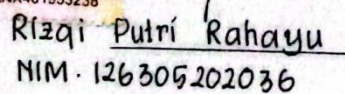 Rizqi Putri Rahayu
NIM. 126305202036